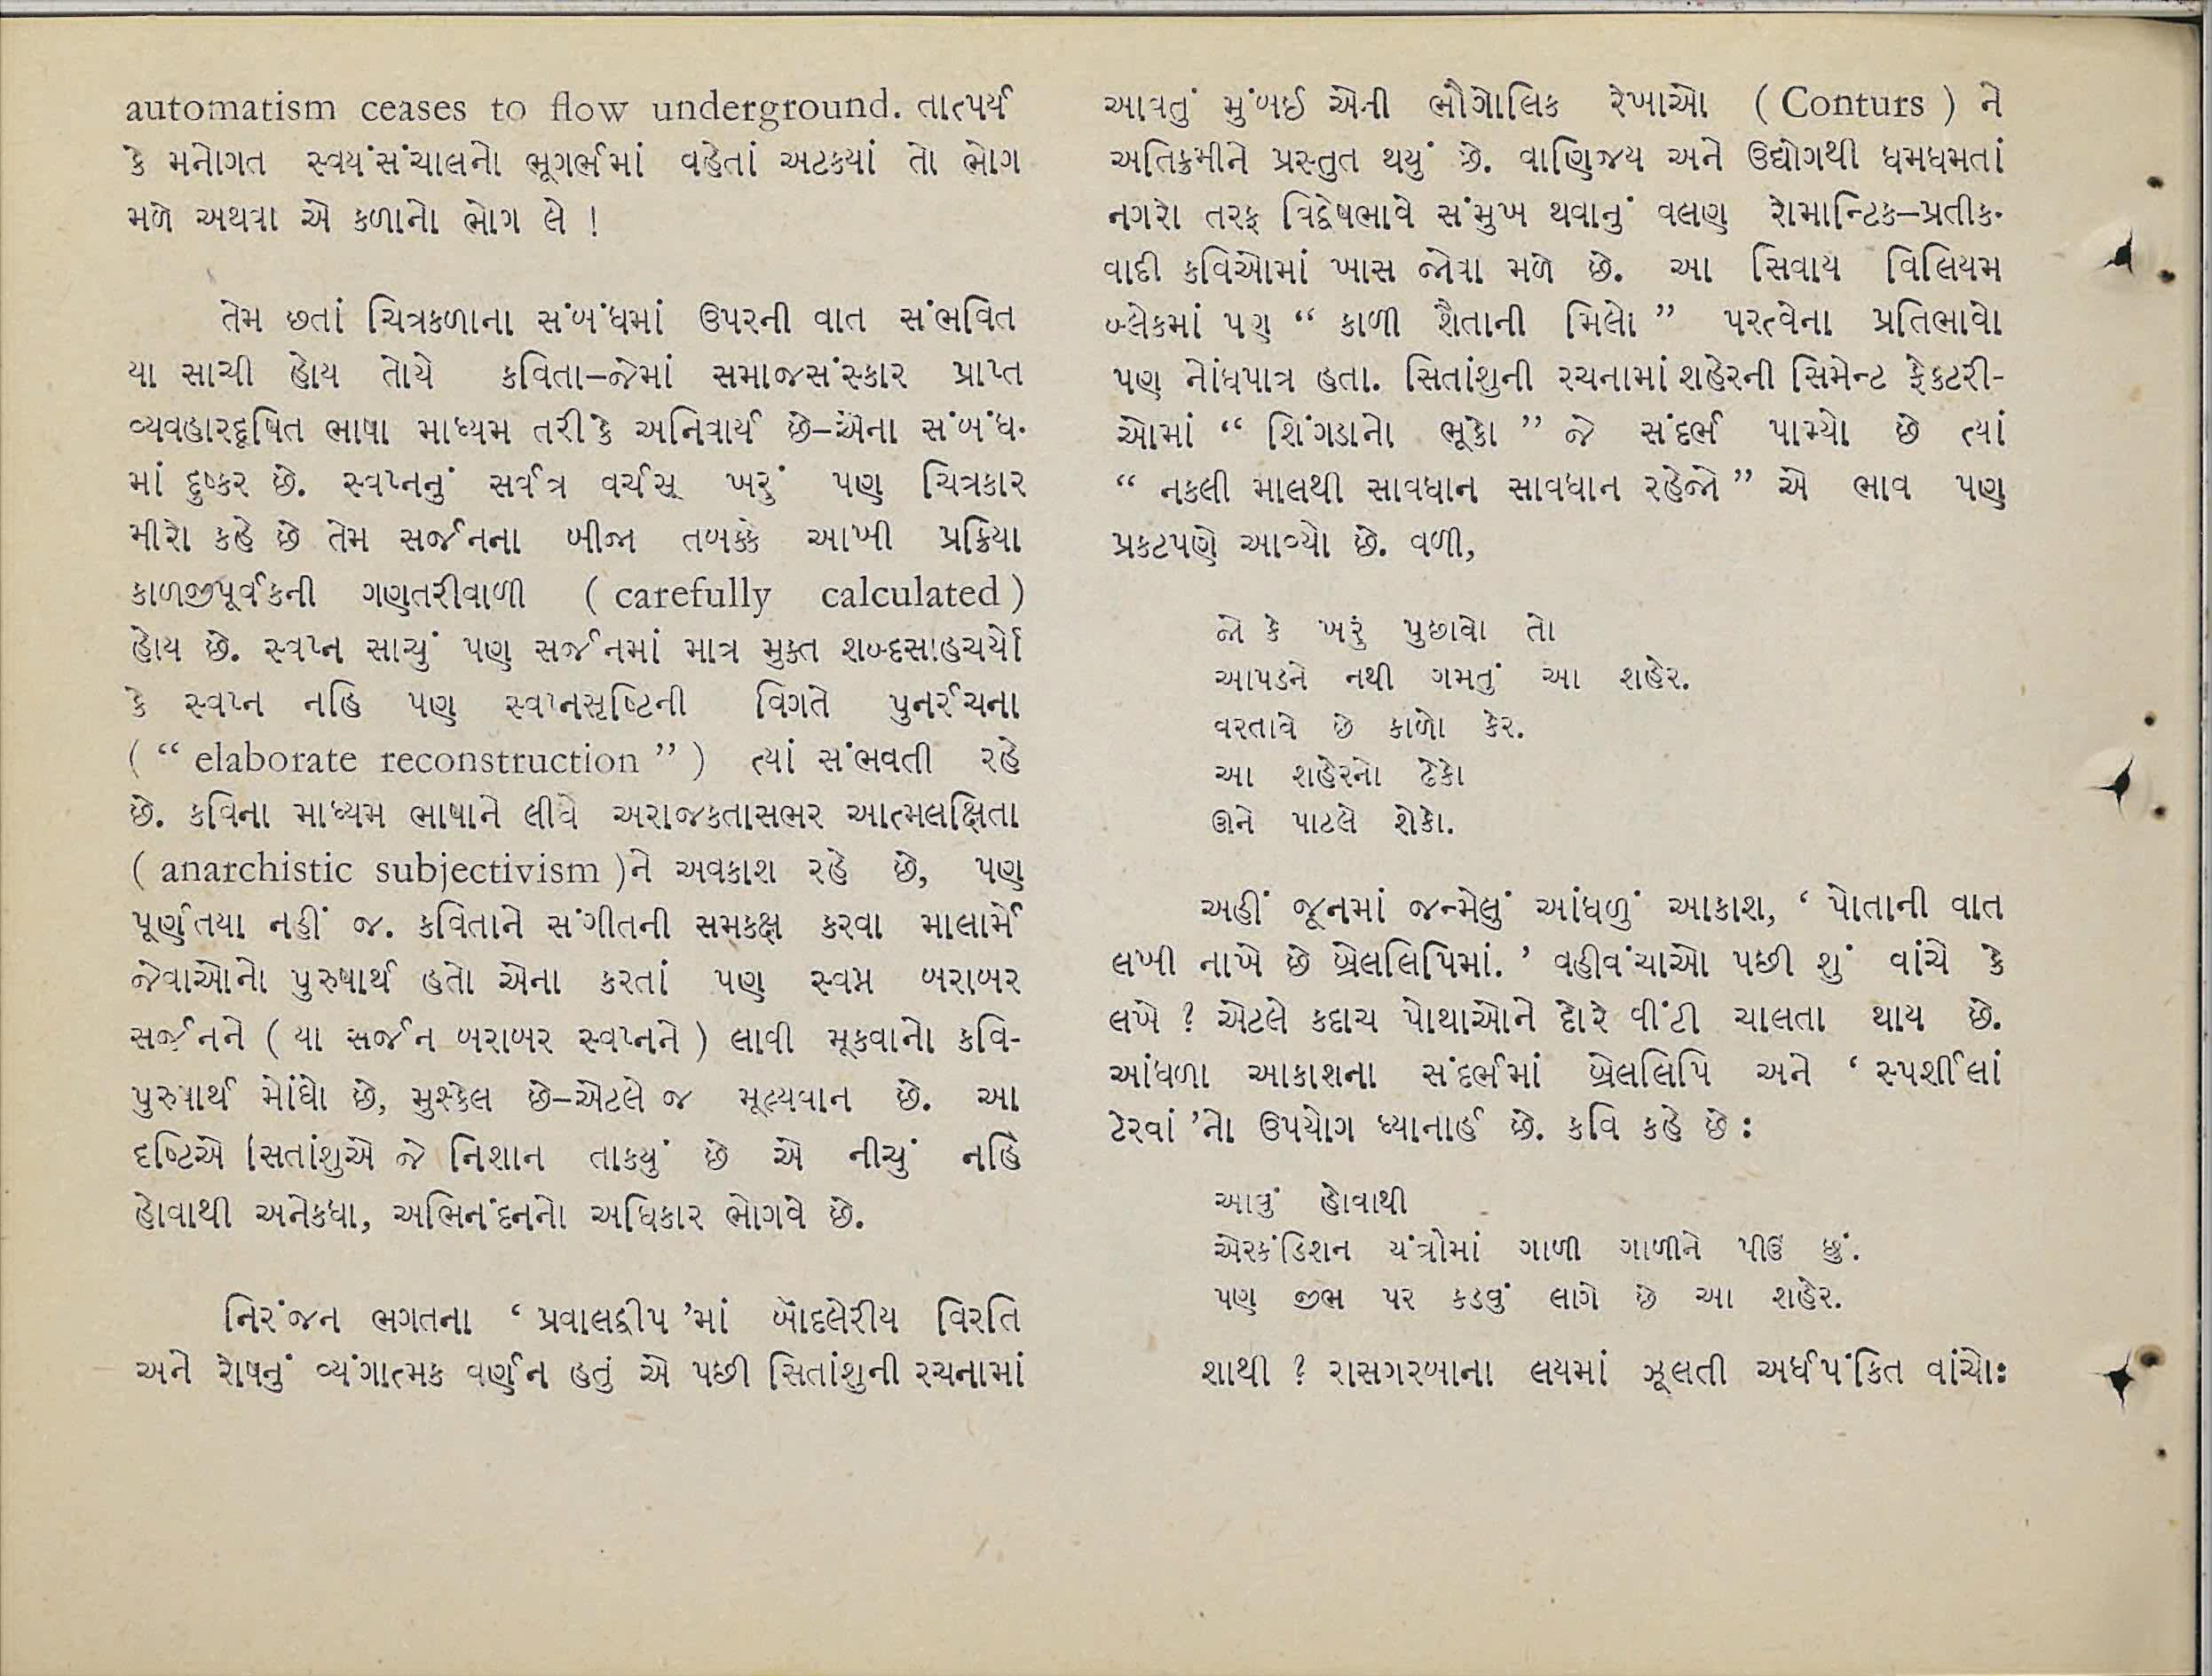 automatism ceases to flow underground. તાત્પર્ય
કે મનોગત સ્વયંસંચાલનો ભૂગર્ભમાં વહેતાં અટક્યાં તો ભોગ
મળે અથવા એ કળાનો ભોગ લે !
તેમ છતાં ચિત્રકળાના સંબંધમાં ઉપરની વાત સંભવિત
યા સાચી હોય તોયે કવિતા–જેમાં સમાજસંસ્કાર પ્રાપ્ત
વ્યવહારદૂષિત ભાષા માધ્યમ તરીકે અનિવાર્ય છે–એના સંબંધ-
માં દુષ્કર છે. સ્વપ્નનું સર્વત્ર વર્ચસ્ ખરું પણ ચિત્રકાર
મીરો કહે છે તેમ સર્જનના બીજા તબક્કે આખી પ્રક્રિયા
કાળજીપૂર્વકની ગણતરીવાળી ( carefully calculated )
હોય છે. સ્વપ્ન સાચું પણ સર્જનમાં માત્ર મુક્ત શબ્દસાહચર્યો
કે સ્વપ્ન નહિ પણ સ્વપ્નસૃષ્ટિની વિગતે પુનર્રચના
( “ elaborate reconstruction ” ) ત્યાં સંભવતી રહે
છે. કવિના માધ્યમ ભાષાને લીધે અરાજકતાસભર આત્મલક્ષિતા
( anarchistic subjectivism )ને અવકાશ રહે છે, પણ
પૂર્ણતયા નહીં જ. કવિતાને સંગીતની સમકક્ષ કરવા માલાર્મે
જેવાઓનો પુરુષાર્થ હતો એના કરતાં પણ સ્વપ્ન બરાબર
સર્જનને ( યા સર્જન બરાબર સ્વપ્નને ) લાવી મૂકવાનો કવિ-
પુરુષાર્થ મોંઘો છે, મુશ્કેલ છે–એટલે જ મૂલ્યવાન છે. આ
દૃષ્ટિએ સિતાંશુએ જે નિશાન તાક્યું છે એ નીચું નહિ
હોવાથી અનેકધા, અભિનંદનનો અધિકાર ભોગવે છે.
નિરંજન ભગતના ‘ પ્રવાલદ્વીપ ’માં બૉદલેરીય વિરતિ
અને રોષનું વ્યંગાત્મક વર્ણન હતું એ પછી સિતાંશુની રચનામાં
આવતું મુંબઈ એની ભૌગોલિક રેખાઓ ( Conturs ) ને
અતિક્રમીને પ્રસ્તુત થયું છે. વાણિજ્ય અને ઉદ્યોગથી ધમધમતાં
નગરો તરફ વિદ્વેષભાવે સંમુખ થવાનું વલણ રોમાન્ટિક–પ્રતીક-
વાદી કવિઓમાં ખાસ જોવા મળે છે. આ સિવાય વિલિયમ
બ્લેકમાં પણ “ કાળી શૈતાની મિલો ” પરત્વેના પ્રતિભાવો
પણ નોંધપાત્ર હતા. સિતાંશુની રચનામાં શહેરની સિમેન્ટ ફેક્ટરી-
ઓમાં “ શિંગડાનો ભૂકો ” જે સંદર્ભ પામ્યો છે ત્યાં
“ નકલી માલથી સાવધાન સાવધાન રહેજો ” એ ભાવ પણ
પ્રકટપણે આવ્યો છે. વળી,
જો કે ખરું પુછાવો તો
આપડને નથી ગમતું આ શહેર.
વરતાવે છે કાળો કેર.
આ શહેરનો ઢેકો
ઊને પાટલે શેકો.
અહીં જૂનમાં જન્મેલું આંધળું આકાશ, ‘ પોતાની વાત
લખી નાખે છે બ્રેલલિપિમાં. ’ વહીવંચાઓ પછી શું વાંચે કે
લખે ? એટલે કદાચ પોથાઓને દોરે વીંટી ચાલતા થાય છે.
આંધળા આકાશના સંદર્ભમાં બ્રેલલિપિ અને ‘ સ્પર્શીલાં
ટેરવાં ’નો ઉપયોગ ધ્યાનાર્હ છે. કવિ કહે છે :
આવું હોવાથી
એરકંડિશન યંત્રોમાં ગાળી ગાળીને પીઉં છું.
પણ જીભ પર કડવું લાગે છે આ શહેર.
શાથી ? રાસગરબાના લયમાં ઝૂલતી અર્ધપંક્તિ વાંચો: